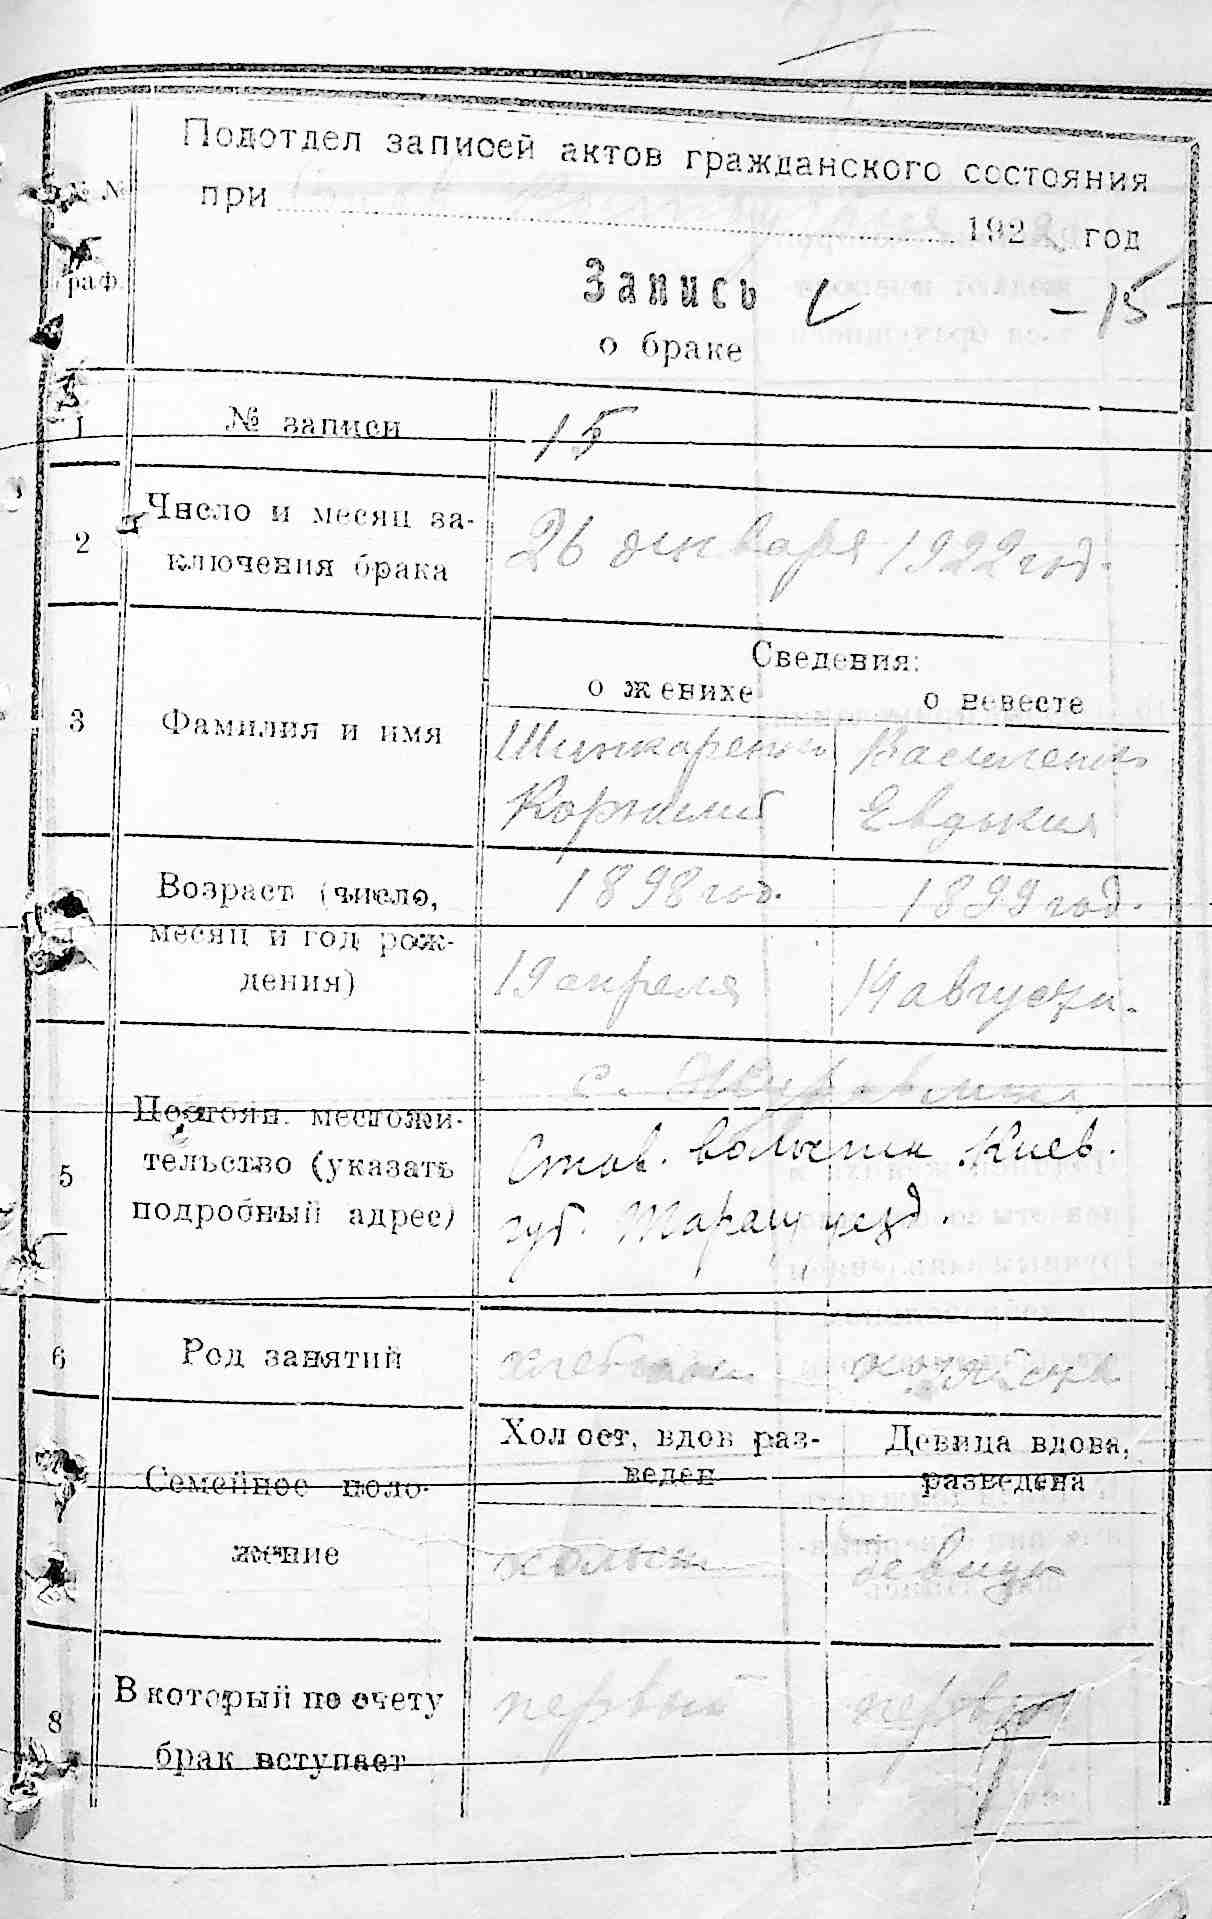 Подотдел записей актов гражданского состояния
при 1922 год
№ №
граф.
Запись
- 15 -
о браке
1 № записи 15
2 Число и месяц за-
ключения брака
26 января 1922 год.
Сведения:
о женихе о невесте
3 Фамилия и имя
Шинкаренко Василенко
Корнилий Евдокия
Возраст (число,
месяц и год рож-
дения)
1898 год. 1899 год.
19 апреля 14 августа.
5 Постоян. местожи-
тельство (указать
подробный адрес)
с.
Став. волости Киев.
губ. Таращ. уезд.
6 Род занятий
хлебопаш
Семейное поло-
жение
Холост, вдов раз-
веден
Девица вдова,
разведена
холост девица
8 В который по счету
брак вступает
первый первый